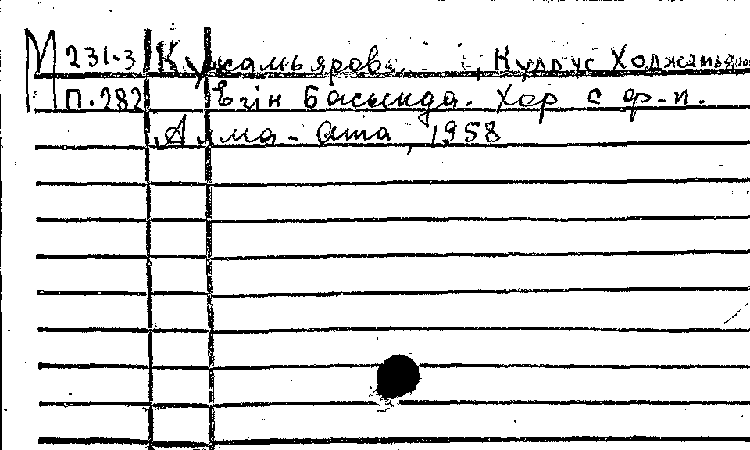 М 231-3 Кужамьярова, Куддус Ходжамьяров
П.282 Егін басында. Хор с ф-п.
Алма-Ата, 1958